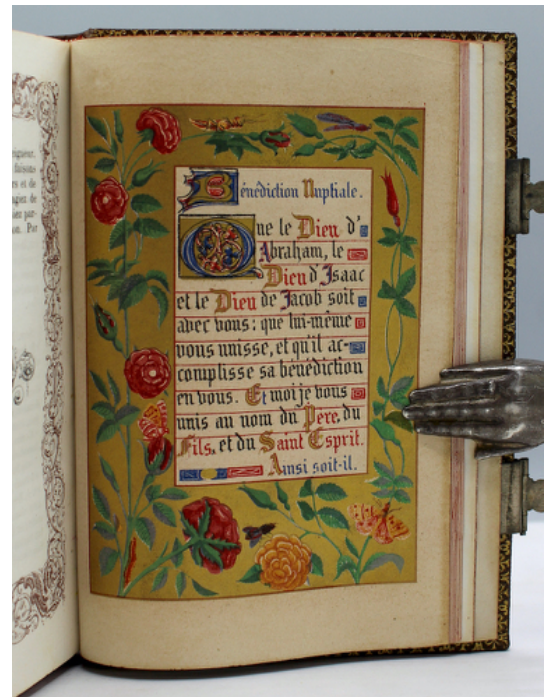 eigneur,
faisons
rs et de
Bénédiction Nuptiale.
Que le Dieu d'
Abraham, le
Dieu d'Isaac
et le Dieu de Jacob soit
avec vous: que lui-même
vous unisse, et qu'il ac-
complisse sa bénédiction
en vous. Et moi je vous
unis au nom du Père, du
Fils, et du Saint Esprit.
Ainsi soit-il.